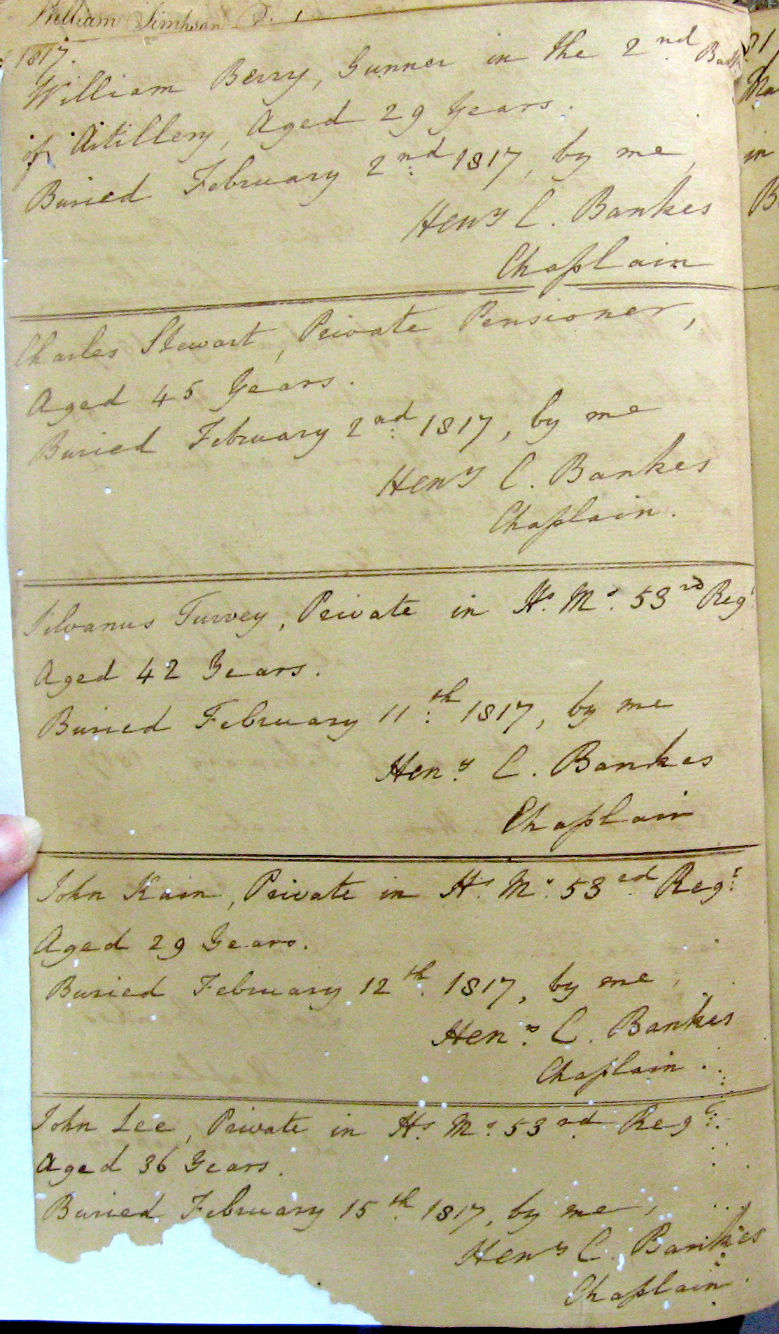 William Simpson
1817.
William Berry, Gunner in the 2nd Battn
of Artillery, Aged 29 Years.
Buried February 2nd 1817, by me,
Heny C. Bankes
Chaplain
Charles Stewart, Private Pensioner,
Aged 45 Years.
Buried February 2nd 1817, by me
Heny C. Bankes
Chaplain.
Silvanus Turvey, Private in Hs. Ms. 53rd Regt
Aged 42 Years.
Buried February 11th 1817, by me
Heny C. Bankes
Chaplain
John Kain, Private in Hs. Ms. 53rd Regt.
Aged 29 Years.
Buried February 12th 1817, by me,
Heny C. Bankes
Chaplain.
John Lee, Private in Hs. Ms. 53rd Regt.
Aged 36 Years.
Buried February 15th 1817, by me,
Heny C. Bankes
Chaplain.
in